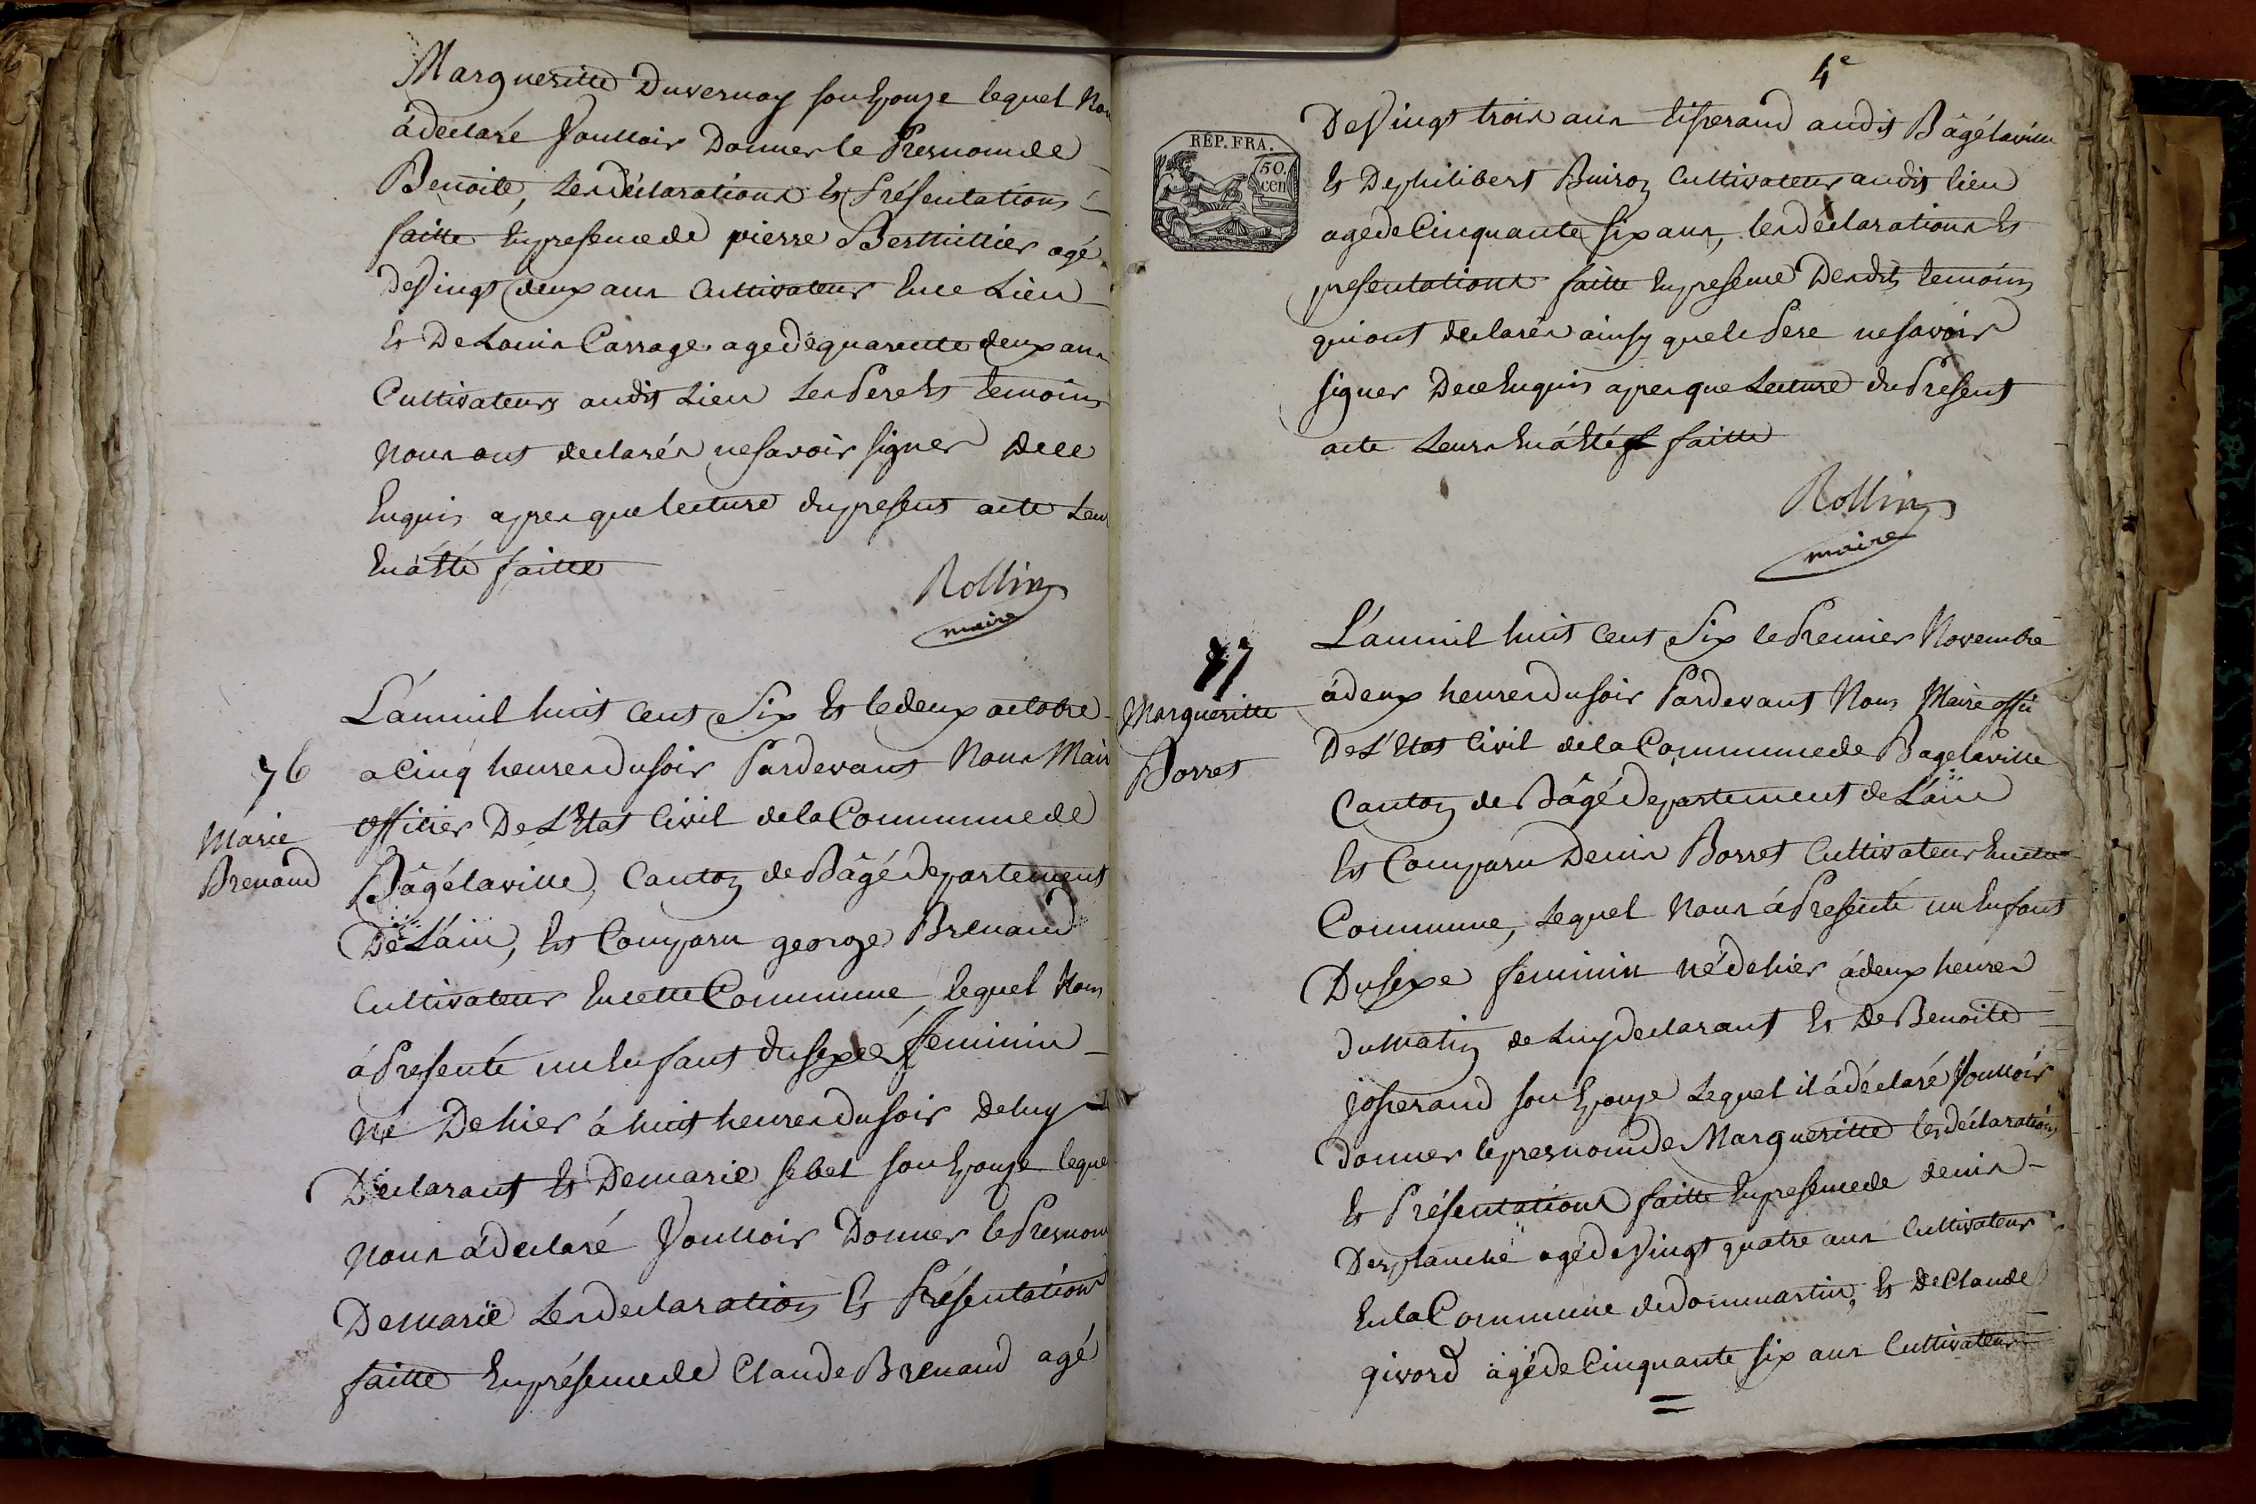 Margueritte Duvernay son Epouse lequel Nou
à declaré Voulloir Donner le Presnom de
Benoite, les déclarations Et Présentations
faitte En presence de pierre Berthillier agé
de Vingt deux ans Cultivateur En ce Lieu
Et De Louis Carrage agé de quarente deux ans
Cultivateurs audit Lieu Les Pere Et temoins
Nous ont declarés ne savoir signer De ce
Enquis apres que lecture du present acte Leur
En à été faitte
Rollin
maire
76
Marie
Brenand
L'an mil huit Cent Six Et le deux octobre
a Cinq heures du soir Pardevant Nous Maire
officier De L'Etat Civil de la Commune de
Bâgélaville, Canton de Bâgé Departement
De L'ain, Est Comparu george Brenand
Cultivateur En cette Commune, lequel Nous
à Presenté un Enfant du sexe feminin
Né De hier à huit heures du soir de luy
Declarant Et De marie sebel son Epouse lequel
Nous à declaré Voulloir Donner le Presnom
De marie Les declaration Et Présentations
faitte En présence de Claude Brenand agé
4e
REP. FRA.
50.
cen
De Vingt trois ans tisserand audit Bâgélaville
Et De philibert Buiron Cultivateur audit lieu
agé de Cinquante six ans, les déclarations Et
presentations faitte En presence Desdits temoins
qui ont declarés ainsy que le Pere ne savoir
signer De ce Enquis apres que Lecture du Present
acte Leurs En à été faitte
Rollin
maire
77
Margueritte
Borret
L'an mil huit Cent Six le Premier Novembre
à deux heures du soir Pardevant Nous Maire offi
De L'Etat Civil de la Commune de Bagelaville
Canton de Bâgé Departement de L'ain
Est Comparu Denis Borret Cultivateur En cette
Commune, Lequel Nous à Presenté un Enfant
Du sexe feminin né de hier à deux heures
du Matin de Luy declarant Et De Benoite
josserand son Epouse Lequel il à déclaré Voulloir
donner le presnom de Margueritte les déclarations
Et Présentations faitte En presence de denis
Desplanche agé de Vingt quatre ans Cultivateur
En la Commune de dommartin, Et De Claude
givord agé de Cinquante six ans Cultivateur